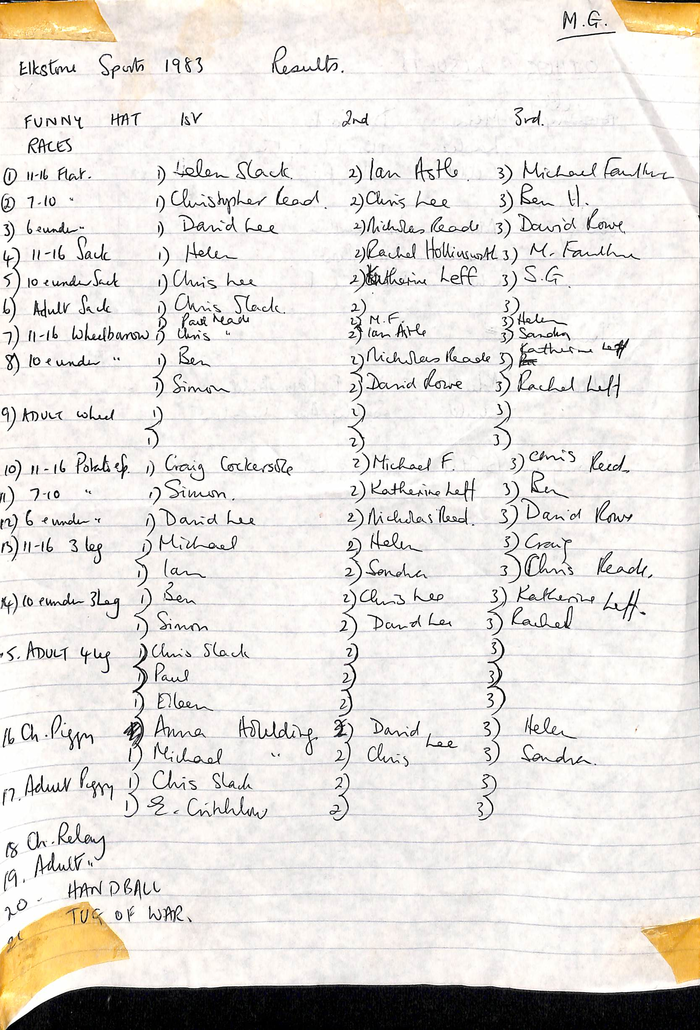 M.G.
Elkstone Sports 1983 Results.
FUNNY HAT 1st 2nd 3rd.
RACES
① 11-16 Flat. 1) Helen Slack. 2) Ian Astle. 3) Michael Faulkner
② 7-10 " 1) Christopher Read. 2) Chris Lee 3) Ben H.
3) 6 & under " 1) David Lee 2) Nicholas Reade 3) David Rowe
4) 11-16 Sack 1) Helen 2) Rachel Hollinsworth 3) M. Faulkner
5) 10 & under Sack 1) Chris Lee 2) Katherine Leff 3) S.G.
6) Adult Sack 1) Chris Slack. 2) 3)
1) Paul Reade 2) M.F. 3) Helen
7) 11-16 Wheelbarrow 1) Chris " 2) Ian Astle 3) Sandra
8) 10 & under " 1) Ben 2) Nicholas Reade 3) Katherine Leff
1) Simon 2) David Rowe 3) Rachel Leff
9) ADULT wheel 1) 2) 3)
1) 2) 3)
10) 11-16 Potato sp. 1) Craig Cockersole 2) Michael F. 3) Chris Reed.
11) 7-10 " 1) Simon. 2) Katherine Leff 3) Ben
12) 6 & under " 1) David Lee 2) Nicholas Reed. 3) David Rowe
13) 11-16 3 leg 1) Michael 2) Helen 3) Craig
1) Ian 2) Sandra 3) Chris Reade.
14) 10 & under 3 leg 1) Ben 2) Chris Lee 3) Katherine Leff.
1) Simon 2) David Lee 3) Rachel
15. ADULT 4 leg 1) Chris Slack 2) 3)
1) Paul 2) 3)
1) Eileen 2) 3)
16 Ch. Piggy 1) Anna Houlding. 2) David Lee 3) Helen
1) Michael " 2) Chris 3) Sandra.
17. Adult Piggy 1) Chris Slack 2) 3)
1) E. Critchlow 2) 3)
18 Ch. Relay
19. Adult "
20 - HANDBALL
21 TUG OF WAR.